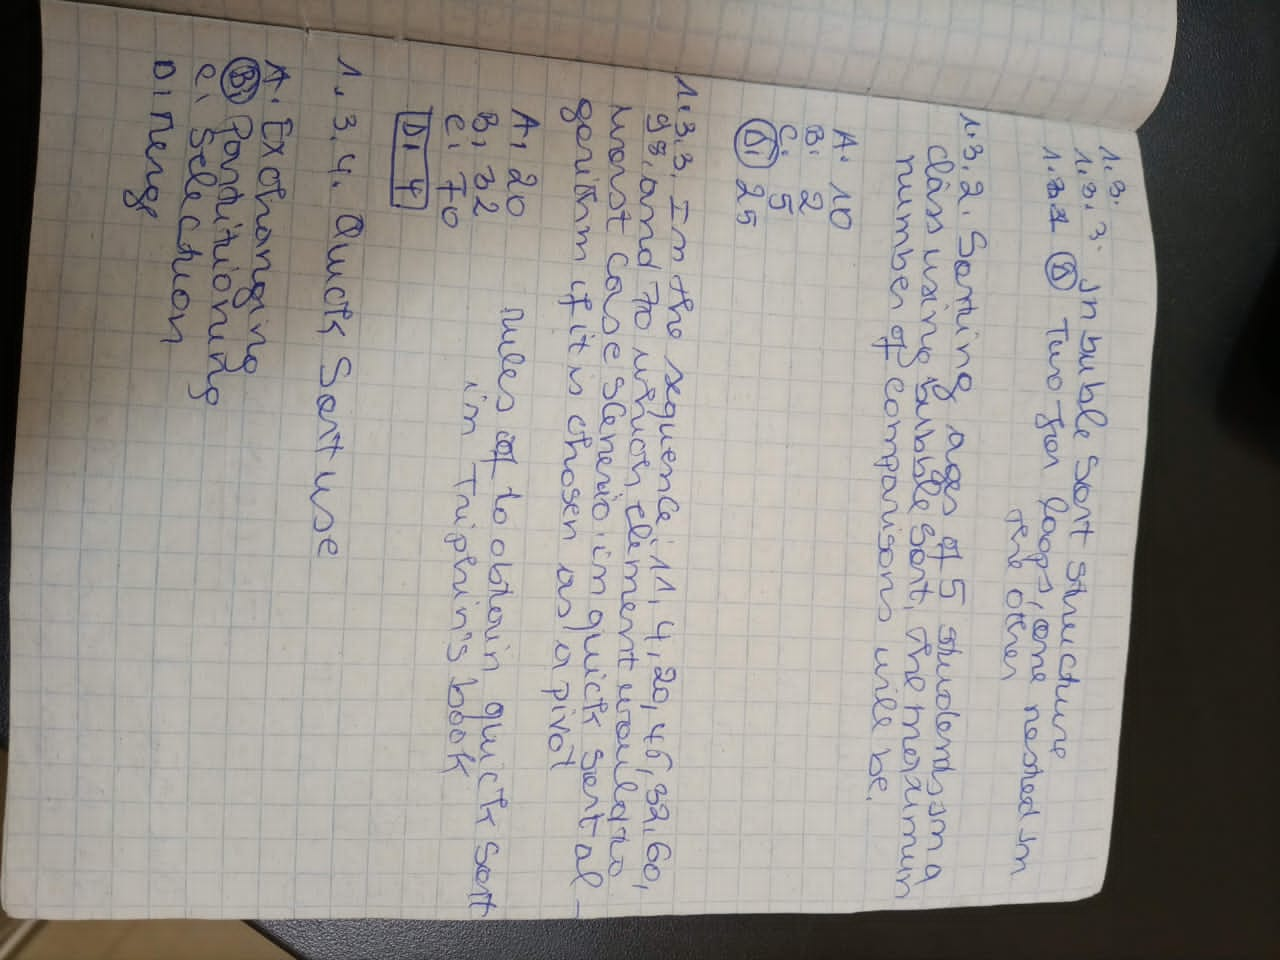 1.3.
1.3.3. In buble Sort structure
1.3.1 (A) Two for loops, one nested in
the other
1.3.2. Sorting ages of 5 students in a
class using bubble sort, the maximun
number of comparisons will be.
A. 10
B. 2
C. 5
(D.) 25
1.3.3. In the sequence 11, 4, 20, 46, 32, 60,
98, and 70 which element would no
worst case scenerio in quick sort al-
gorithm if it is chosen as a pivot
A. 20
B. 32
C. 70
D. 4
rules of to obtain quick sort
in Triphin's book
1.3.4. Quick Sort use
A. Exchanging
(B.) Partitioning
C. Selection
D. Merge